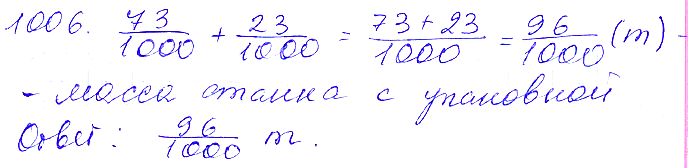 1006. 73/1000 + 23/1000 = 73+23/1000 = 96/1000 (т) -
- масса станка с упаковкой
Ответ: 96/1000 т.